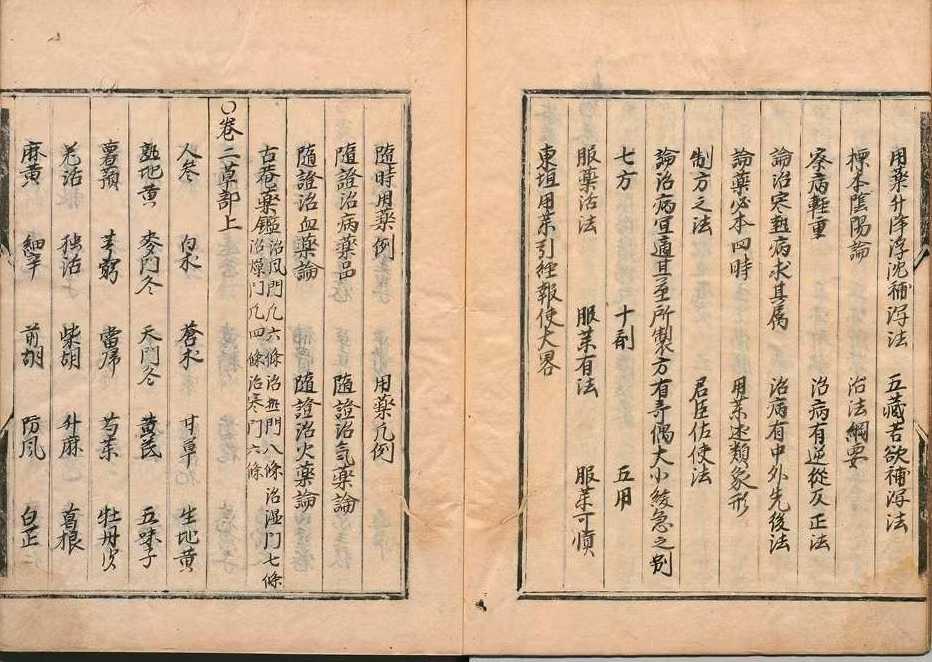 用藥升降浮沉補瀉法　五藏苦欲補瀉法
標本陰陽論　治法綱要
察病輕重　治病有逆從反正法
論治寒熱病求其属　治病有中外先後法
論藥必本四時　用藥述類象形
制方之法　君臣佐使法
論治病宜適其至所製方有竒偶大小緩急之別
七方　十剤　五用
服藥活法　服藥有法　服藥可慎
東垣用藥引経報使大畧
隨時用藥例　用藥凡例
隨證治病藥品　隨證治気藥論
隨證治血藥論　隨證治火藥論
古菴藥鑑治風門凡六條治熱門八條治湿門七條
治燥門凡四條治寒門六條
〇卷二草部上
人参　白朮　蒼朮　甘草　生地黄
熟地黄　麥門冬　天門冬　黄芪　五味子
薯蕷　芎藭　當㱕　芍藥　牡丹皮
羌活　独活　柴胡　升麻　葛根
麻黄　細辛　前胡　防風　白芷